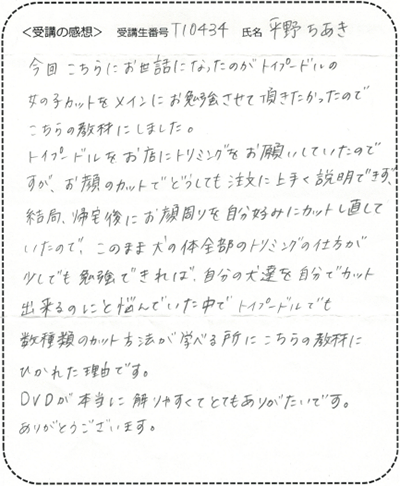 ＜受講の感想＞ 受講生番号 T10434 氏名 平野ちあき
今回こちらにお世話になったのがトイプードルの
女の子カットをメインにお勉強させて頂きたかったので
こちらの教材にしました。
トイプードルをお店にトリミングをお願いしていたので
すが、お顔のカットでどうしても注文に上手く説明できず、
結局、帰宅後にお顔周りを自分好みにカットし直して
いたので、このまま犬の体全部のトリミングの仕方が
少しでも勉強できれば、自分の犬達を自分でカット
出来るのにと悩んでいた中でトイプードルでも
数種類のカット方法が学べる所にこちらの教材に
ひかれた理由です。
DVDが本当に解りやすくてとてもありがたいです。
ありがとうございます。